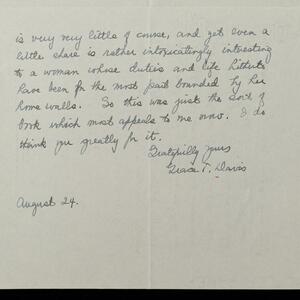 is very very little of course, and yet even a
little share is rather intoxicatingly interesting
to a woman whose duties and life hitherto
have been for the most part bounded by her
home walls. So this was just the sort of
book which most appeals to me now. I do
thank you greatly for it.
Gratefully yours
Grace T. Davis
August 24.